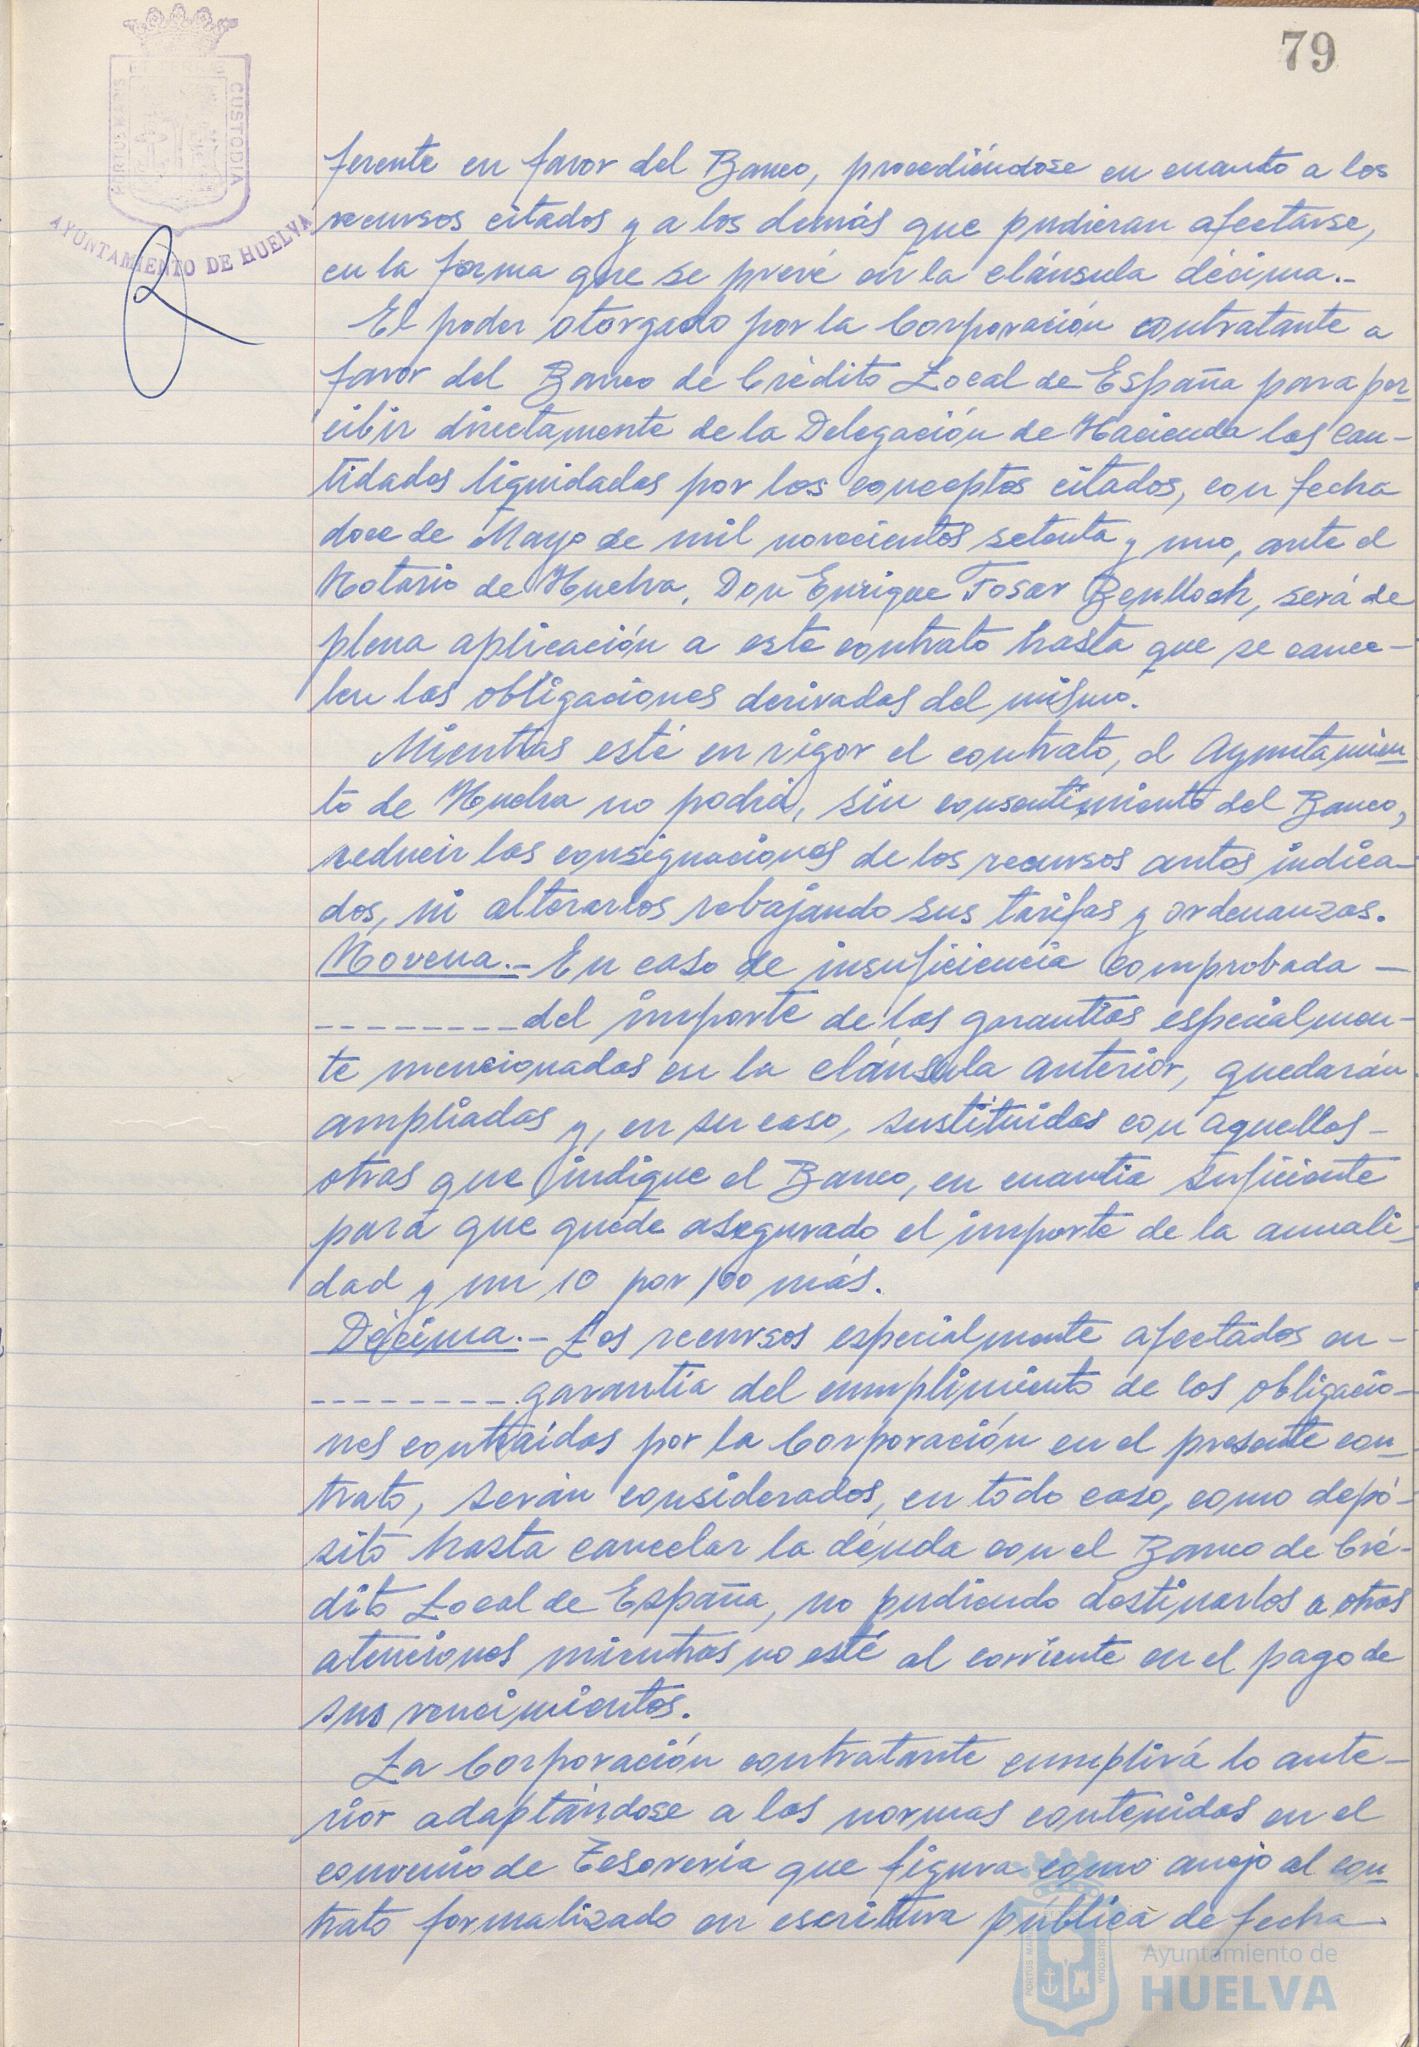 79
PORTUS MARIS
CUSTODIA
AYUNTAMIENTO DE HUELVA
ferente en favor del Banco, procediéndose en cuanto a los
recursos citados y a los demás que pudieran afectarse,
en la forma que se prevé en la cláusula décima.-
El poder otorgado por la Corporación contratante a
favor del Banco de Crédito Local de España para per-
cibir directamente de la Delegación de Hacienda las can-
tidades liquidadas por los conceptos citados, con fecha
doce de Mayo de mil novecientos setenta y uno, ante el
Notario de Huelva, Don Enrique Fosar Benlloch, será de
plena aplicación a este contrato hasta que se cance-
len las obligaciones derivadas del mismo.
Mientras esté en vigor el contrato, el Ayuntamien-
to de Huelva no podrá, sin consentimiento del Banco,
reducir las consignaciones de los recursos antes indica-
dos, ni alterarlos rebajando sus tarifas y ordenanzas.
Novena.- En caso de insuficiencia comprobada -
-------- del importe de las garantías especialmen-
te mencionadas en la cláusula anterior, quedarán
ampliadas y, en su caso, sustituidas con aquellas -
otras que indique el Banco, en cuantía suficiente
para que quede asegurado el importe de la anuali-
dad y un 10 por 100 más.
Décima.- Los recursos especialmente afectados en -
-------- garantía del cumplimiento de los obligacio-
nes contraídas por la Corporación en el presente con-
trato, serán considerados, en todo caso, como depó-
sito hasta cancelar la deuda con el Banco de Cré-
dito Local de España, no pudiendo destinarlos a otras
atenciones mientras no esté al corriente en el pago de
sus vencimientos.
La Corporación contratante cumplirá lo ante-
rior adaptándose a las normas contenidas en el
convenio de Tesorería que figura como anejo al con-
trato formalizado en escritura pública de fecha
Ayuntamiento de
HUELVA